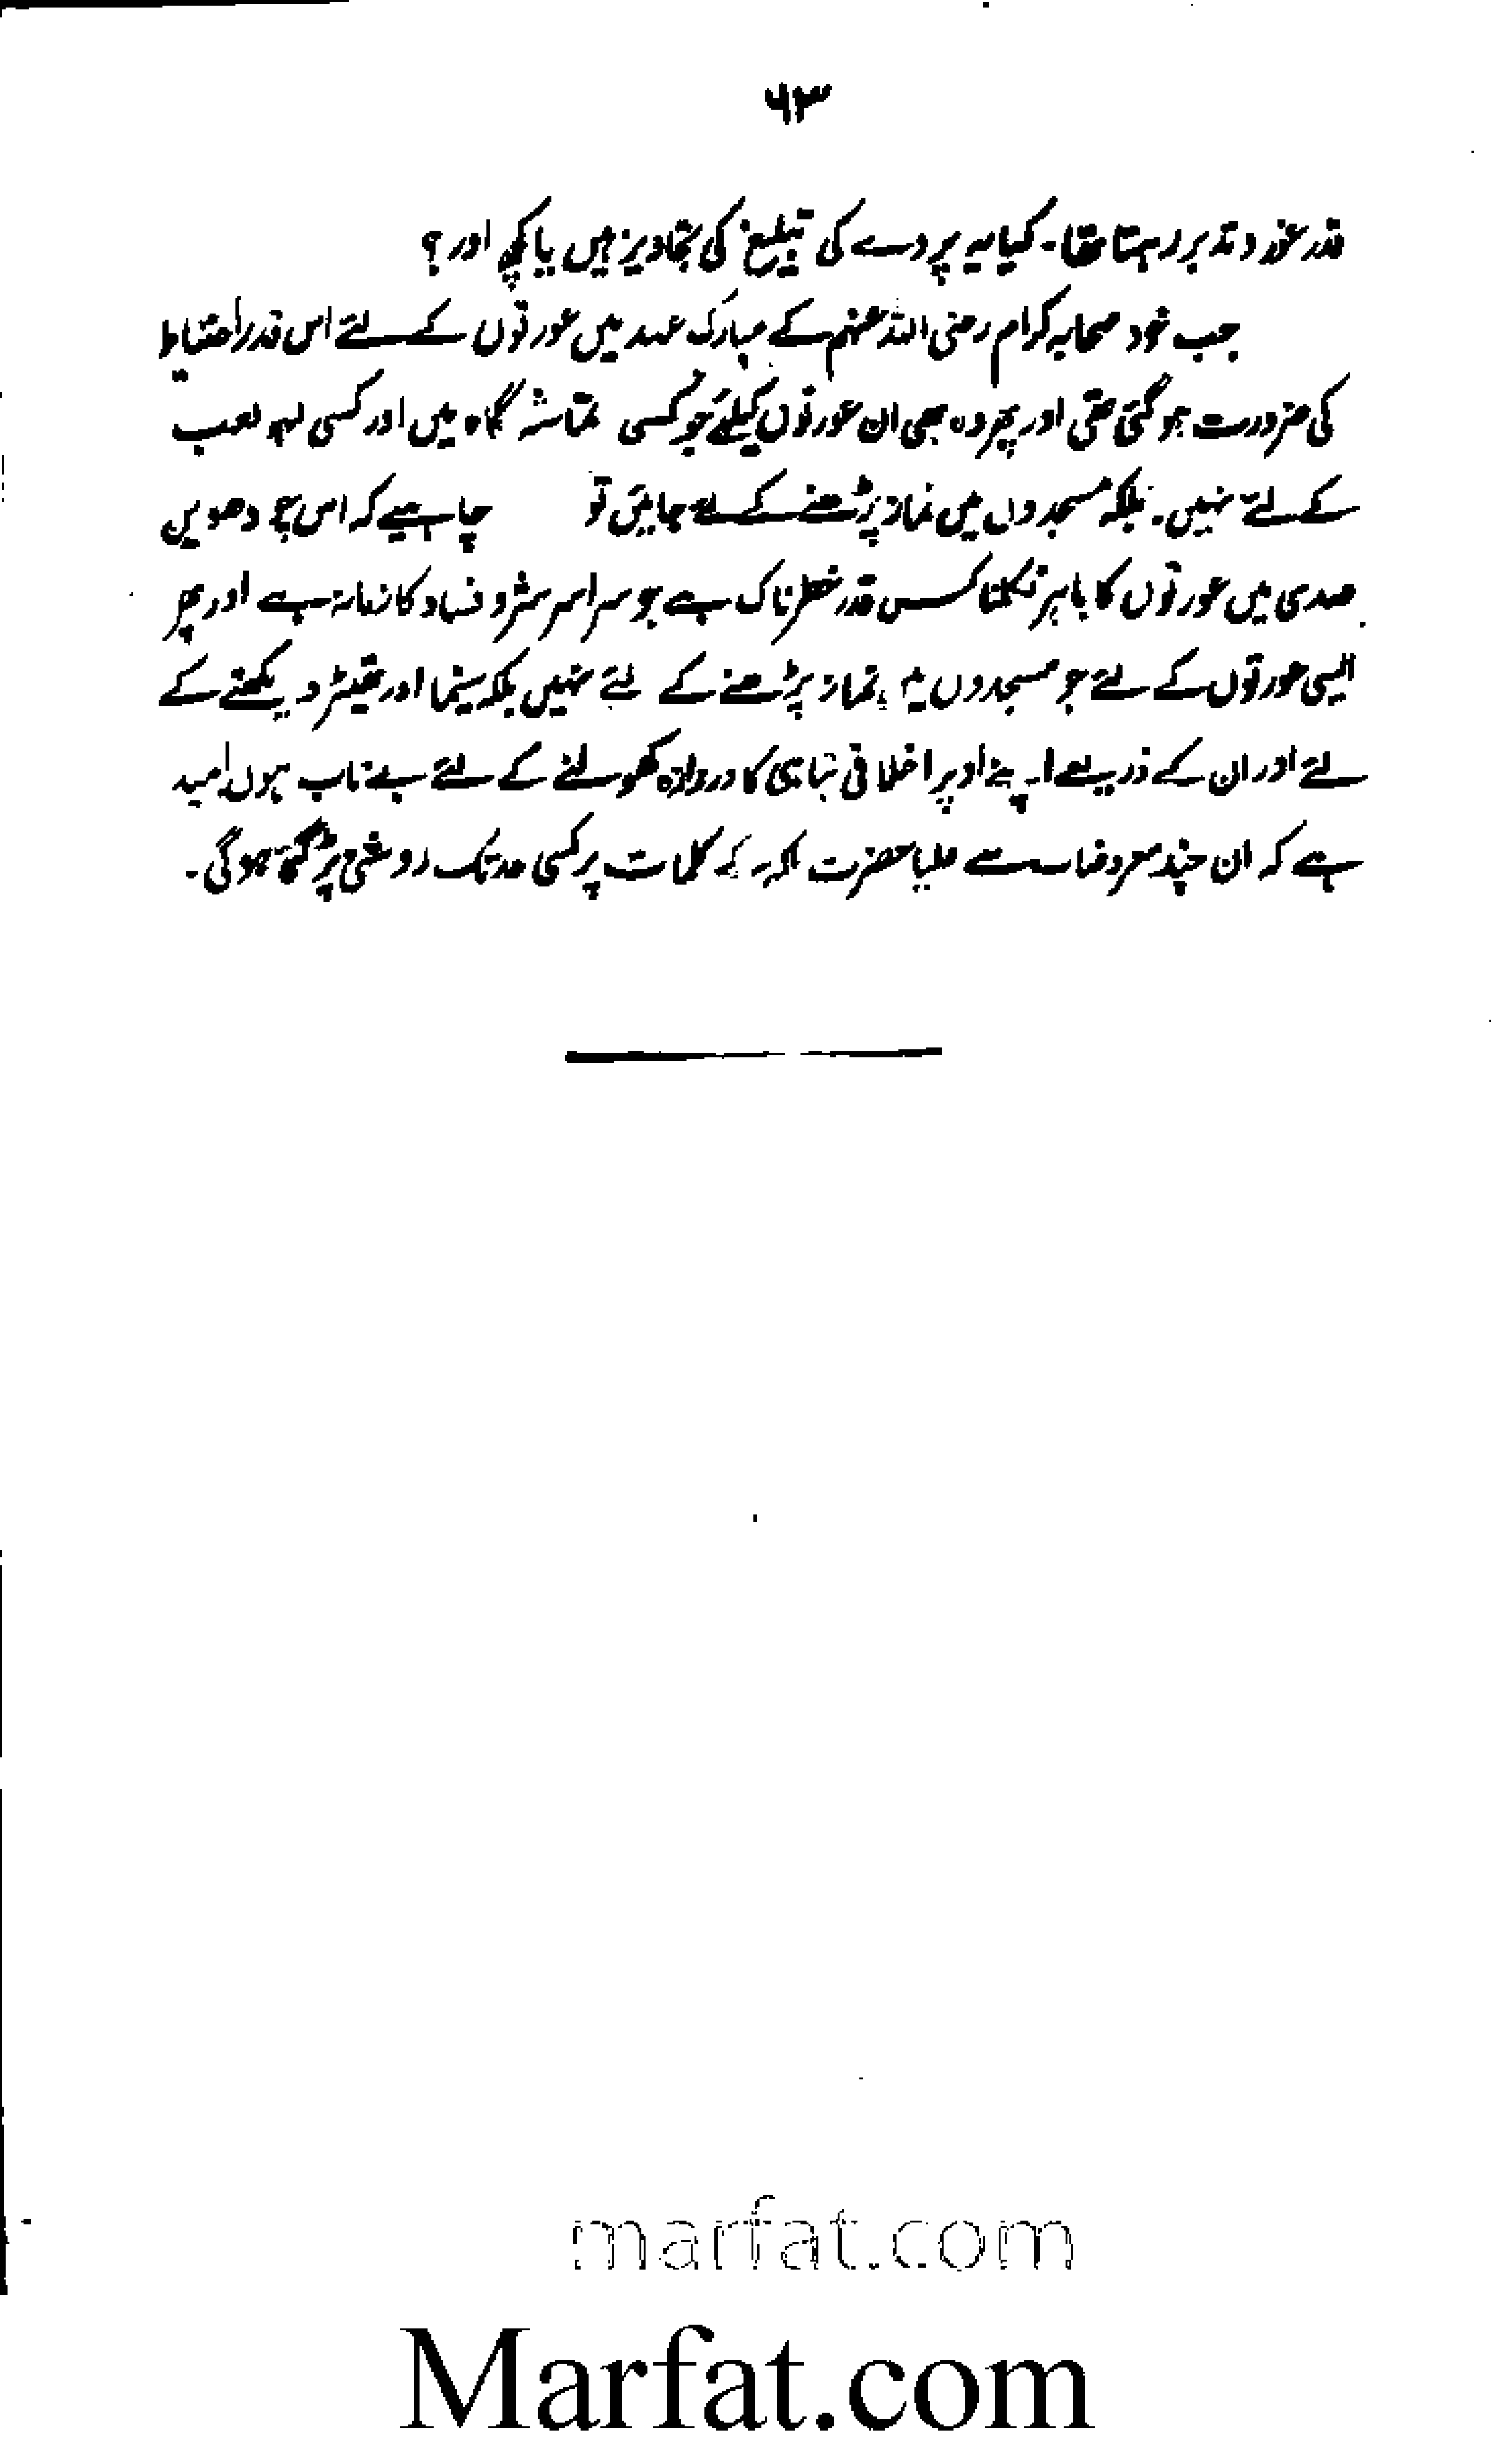 ۶۳
قدر غور و تدبر رہتا تھا۔ کیا یہ پردے کی تبلیغ کی تجاویز ہیں یا کچھ اور؟
جب خود صحابہ کرام رضی اللہ عنہم کے مبارک عہد میں عورتوں کے لئے اس قدر احتیاط
کی ضرورت ہو گئی تھی اور پھر وہ بھی ان عورتوں کیلئے جو کسی تماشہ گاہ میں اور کسی لہو لعب
کے لئے نہیں۔ بلکہ مسجدوں میں نماز پڑھنے کے لئے جائیں تو چاہیے کہ اس چودھویں
صدی میں عورتوں کا باہر نکلنا کس قدر خطرناک ہے جو سراسر شر و فساد کا زمانہ ہے اور پھر
ایسی عورتوں کے لئے جو مسجدوں نماز پڑھنے کے لئے نہیں بلکہ سینما اور تھیٹر دیکھنے کے
لئے اور ان کے ذریعے اپنے اوپر اخلاقی تباہی کا دروازہ کھولنے کے لئے بے تاب ہوں امید
ہے کہ ان چند معروضات سے حضرت کے کلمات پر کسی حد تک روشنی پڑ گئی ہوگی۔
marfat.com
Marfat.com